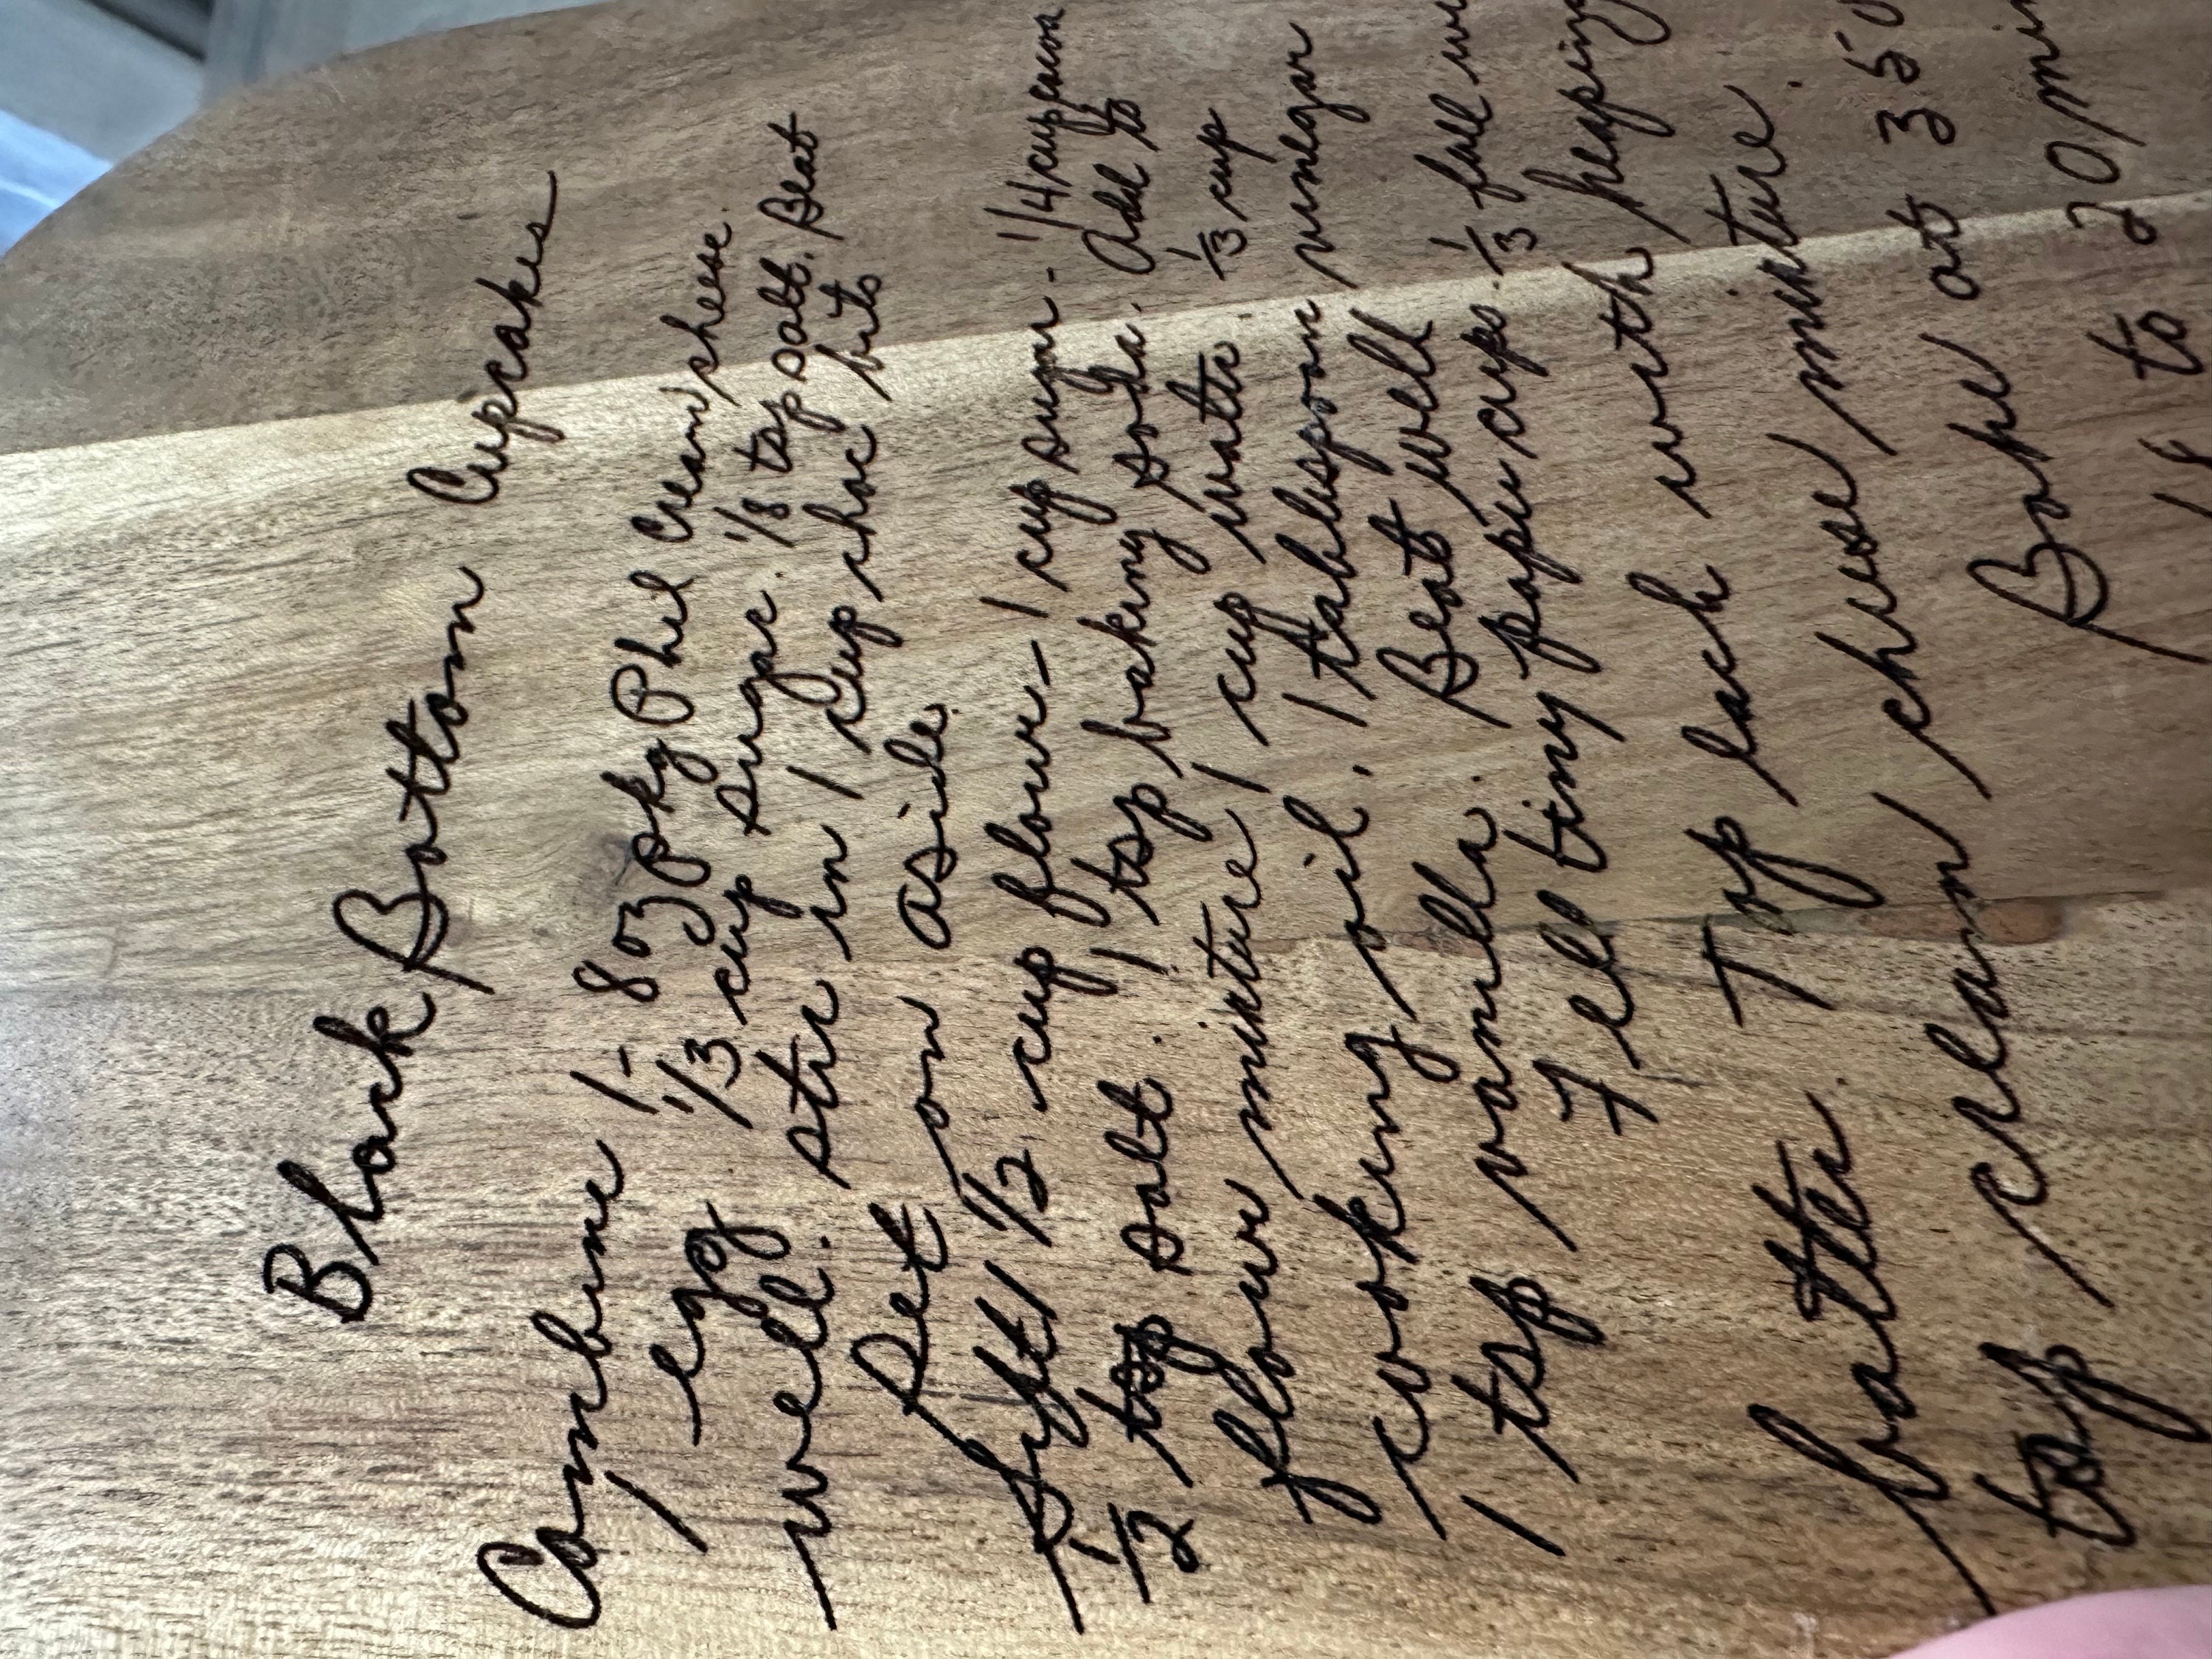 Black Bottom Cupcakes
Combine 1- 8 oz pkg Phil Cream cheese.
1 egg 1/3 cup sugar. 1/8 tsp salt. Beat
well. Stir in 1 cup choc bits
Set on aside.
Sift 1 1/2 cup flour - 1 cup sugar - 1/4 cup cocoa
1/2 tsp salt. 1 tsp baking soda. Add to
flour mixture 1 cup water 1/3 cup
cooking oil. 1 tablespoon vinegar
1 tsp vanilla. Beat well
Fill tiny paper cups. 1/3 full wi
batter. Top each with heaping
tsp cream cheese mixture.
Bake at 350
18 to 20 min